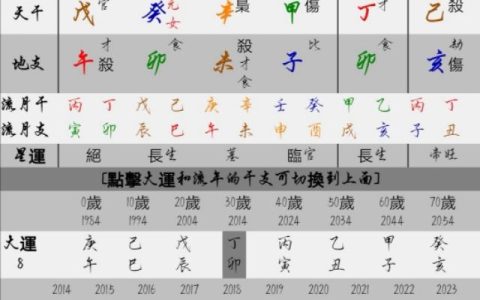 天干 戊官 癸元女 辛梟 甲傷 丁才 己殺
地支 午才殺 卯食 未殺才食 子比 卯食 亥劫傷
流月干 丙 丁 戊 己 庚 辛 壬 癸 甲 乙 丙 丁
流月支 寅 卯 辰 巳 午 未 申 酉 戌 亥 子 丑
星運 絕 長生 墓 臨官 長生 帝旺
[點擊大運和流年的干支可切換到上面]
0歲 10歲 20歲 30歲 40歲 50歲 60歲 70歲
1984 1994 2004 2014 2024 2034 2044 2054
大運 庚 己 戊 丁 丙 乙 甲 癸
8 午 巳 辰 卯 寅 丑 子 亥
2014 2015 2016 2017 2018 2019 2020 2021 2022 2023